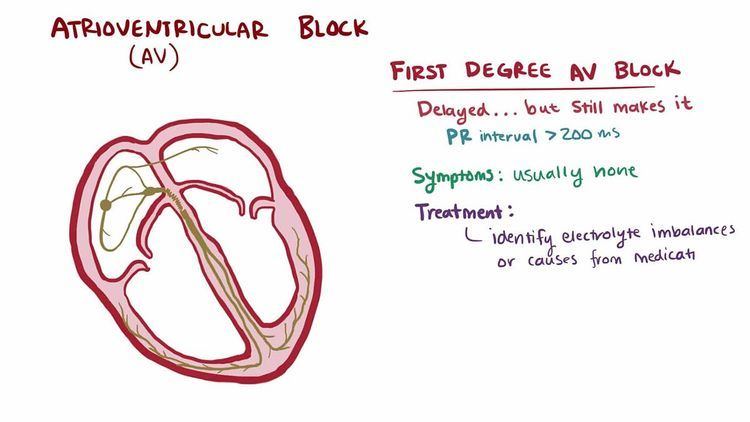 ATRIOVENTRICULAR BLOCK
(AV)
FIRST DEGREE AV BLOCK
Delayed... but still makes it
PR interval > 200 ms
Symptoms: usually none
Treatment:
identify electrolyte imbalances
or causes from medicati